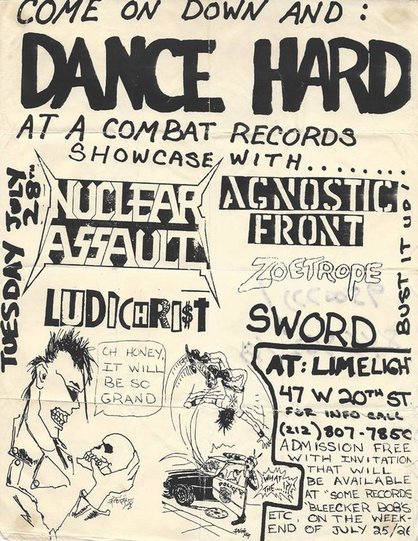 COME ON DOWN AND :
DANCE HARD
AT A COMBAT RECORDS
SHOWCASE WITH........
TUESDAY JULY 28TH
NUCLEAR
ASSAULT
AGNOSTIC
FRONT
BUST IT UP!
ZOETROPE
LUDICHRI$T
SWORD
OH HONEY,
IT WILL
BE SO
GRAND
WHAT
THE
AT: LIMELIGHT
47 W 20TH ST
FOR INFO CALL
(212) 807-7850
ADMISSION FREE
WITH INVITATION
THAT WILL
BE AVAILABLE
AT SOME RECORDS
BLEECKER BOB'S
ETC, ON THE WEEK-
END OF JULY 25/26